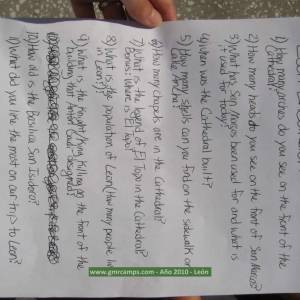 1) How many arches do you see on the front of the
Cathedral?
2) How many heads do you see on the front of San Marcos?
3) What has San Marcos been used for and what is
it used for today?
4) When was the Cathedral built?
5) How many shells can you find on the sidewalk on
Calle Ancha?
6) How many chapels are in the Cathedral?
7) What is the legend of El Topo in the Cathedral?
Bonus: Where is El Topo?
8) What is the population of León (How many people live
in León)?
9) What is the Knight/King killing on the front of the
building that Antoni Gaudí designed?
10) How old is the Basilica San Isidoro?
11) What do you like the most on our trip to León?
www.gmrcamps.com - Año 2010 - León